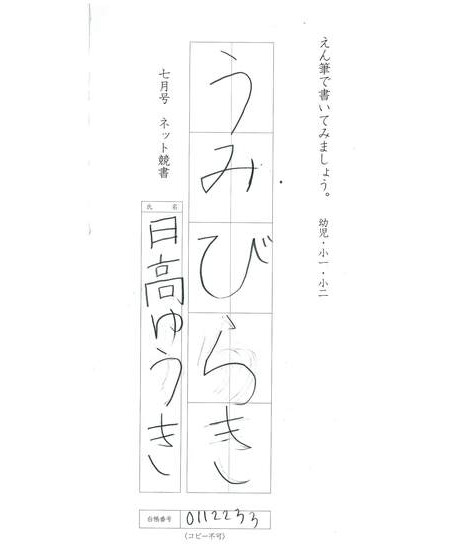 えん筆で書いてみましょう。　幼児・小一・小二
うみびらき
七月号　ネット競書
氏名
日高ゆうき
台帳番号 0112233
(コピー不可)